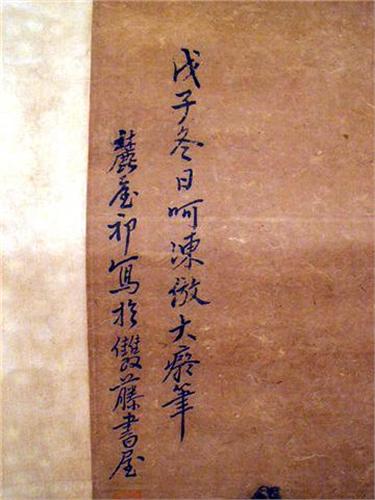 戊子冬日呵凍倣大癡筆
麓臺祁寫於雙藤書屋